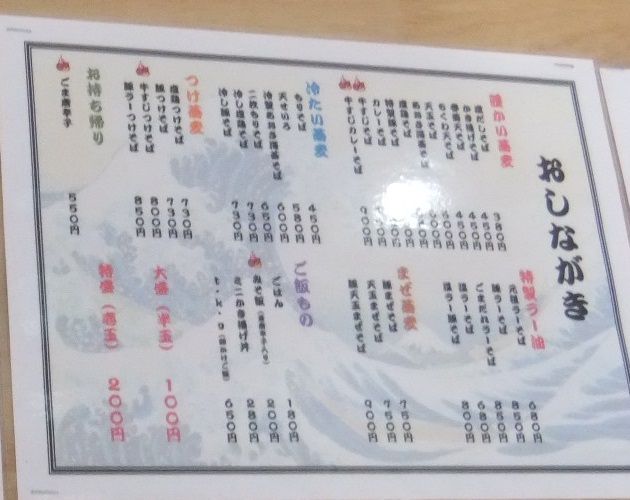 おしながき
温かい蕎麦
塩だしそば 380円
かき揚げそば 450円
春菊天そば 450円
ちくわ天そば 450円
天玉そば
あおさ海苔そば
塩鶏そば
特製豚そば
カレーそば
牛すじそば
牛すじカレーそば 900円
冷たい蕎麦
もりそば 450円
天せいろ 580円
冷製あおさ海苔そば 600円
二枚もりそば 650円
冷し塩鶏そば 730円
冷し豚そば 730円
つけ蕎麦
塩鶏つけそば 730円
豚つけそば 730円
牛すじつけそば 800円
豚ラーつけそば 850円
お持ち帰り
ごま唐辛子 550円
特製ラー油
元祖ラーそば 680円
豚ラーそば 850円
ごまだれラーそば 850円
塩ラーそば 680円
塩ラー豚そば 800円
まぜ蕎麦
豚まぜそば 750円
天玉まぜそば 750円
豚天玉まぜそば 900円
ご飯もの
ごはん 180円
みそ飯 200円
ミニかき揚げ丼 280円
t.k.g（卵かけご飯） 650円
大盛（半玉） 100円
特盛（壱玉） 200円